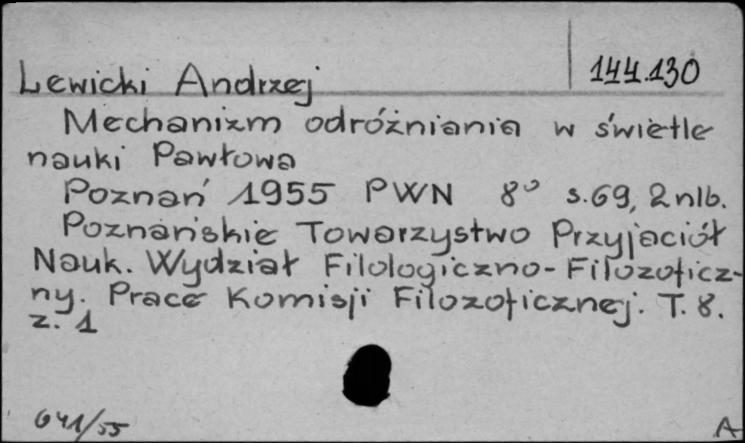 Lewicki Andrzej 144.130
Mechanizm odróżniania w świetle
nauki Pawłowa
Poznań 1955 PWN 8° s.69, 2nlb.
Poznańskie Towarzystwo Przyjaciół
Nauk. Wydział Filologiczno-Filozoficz-
ny. Prace Komisji Filozoficznej. T. 8.
z. 1
641/55 A